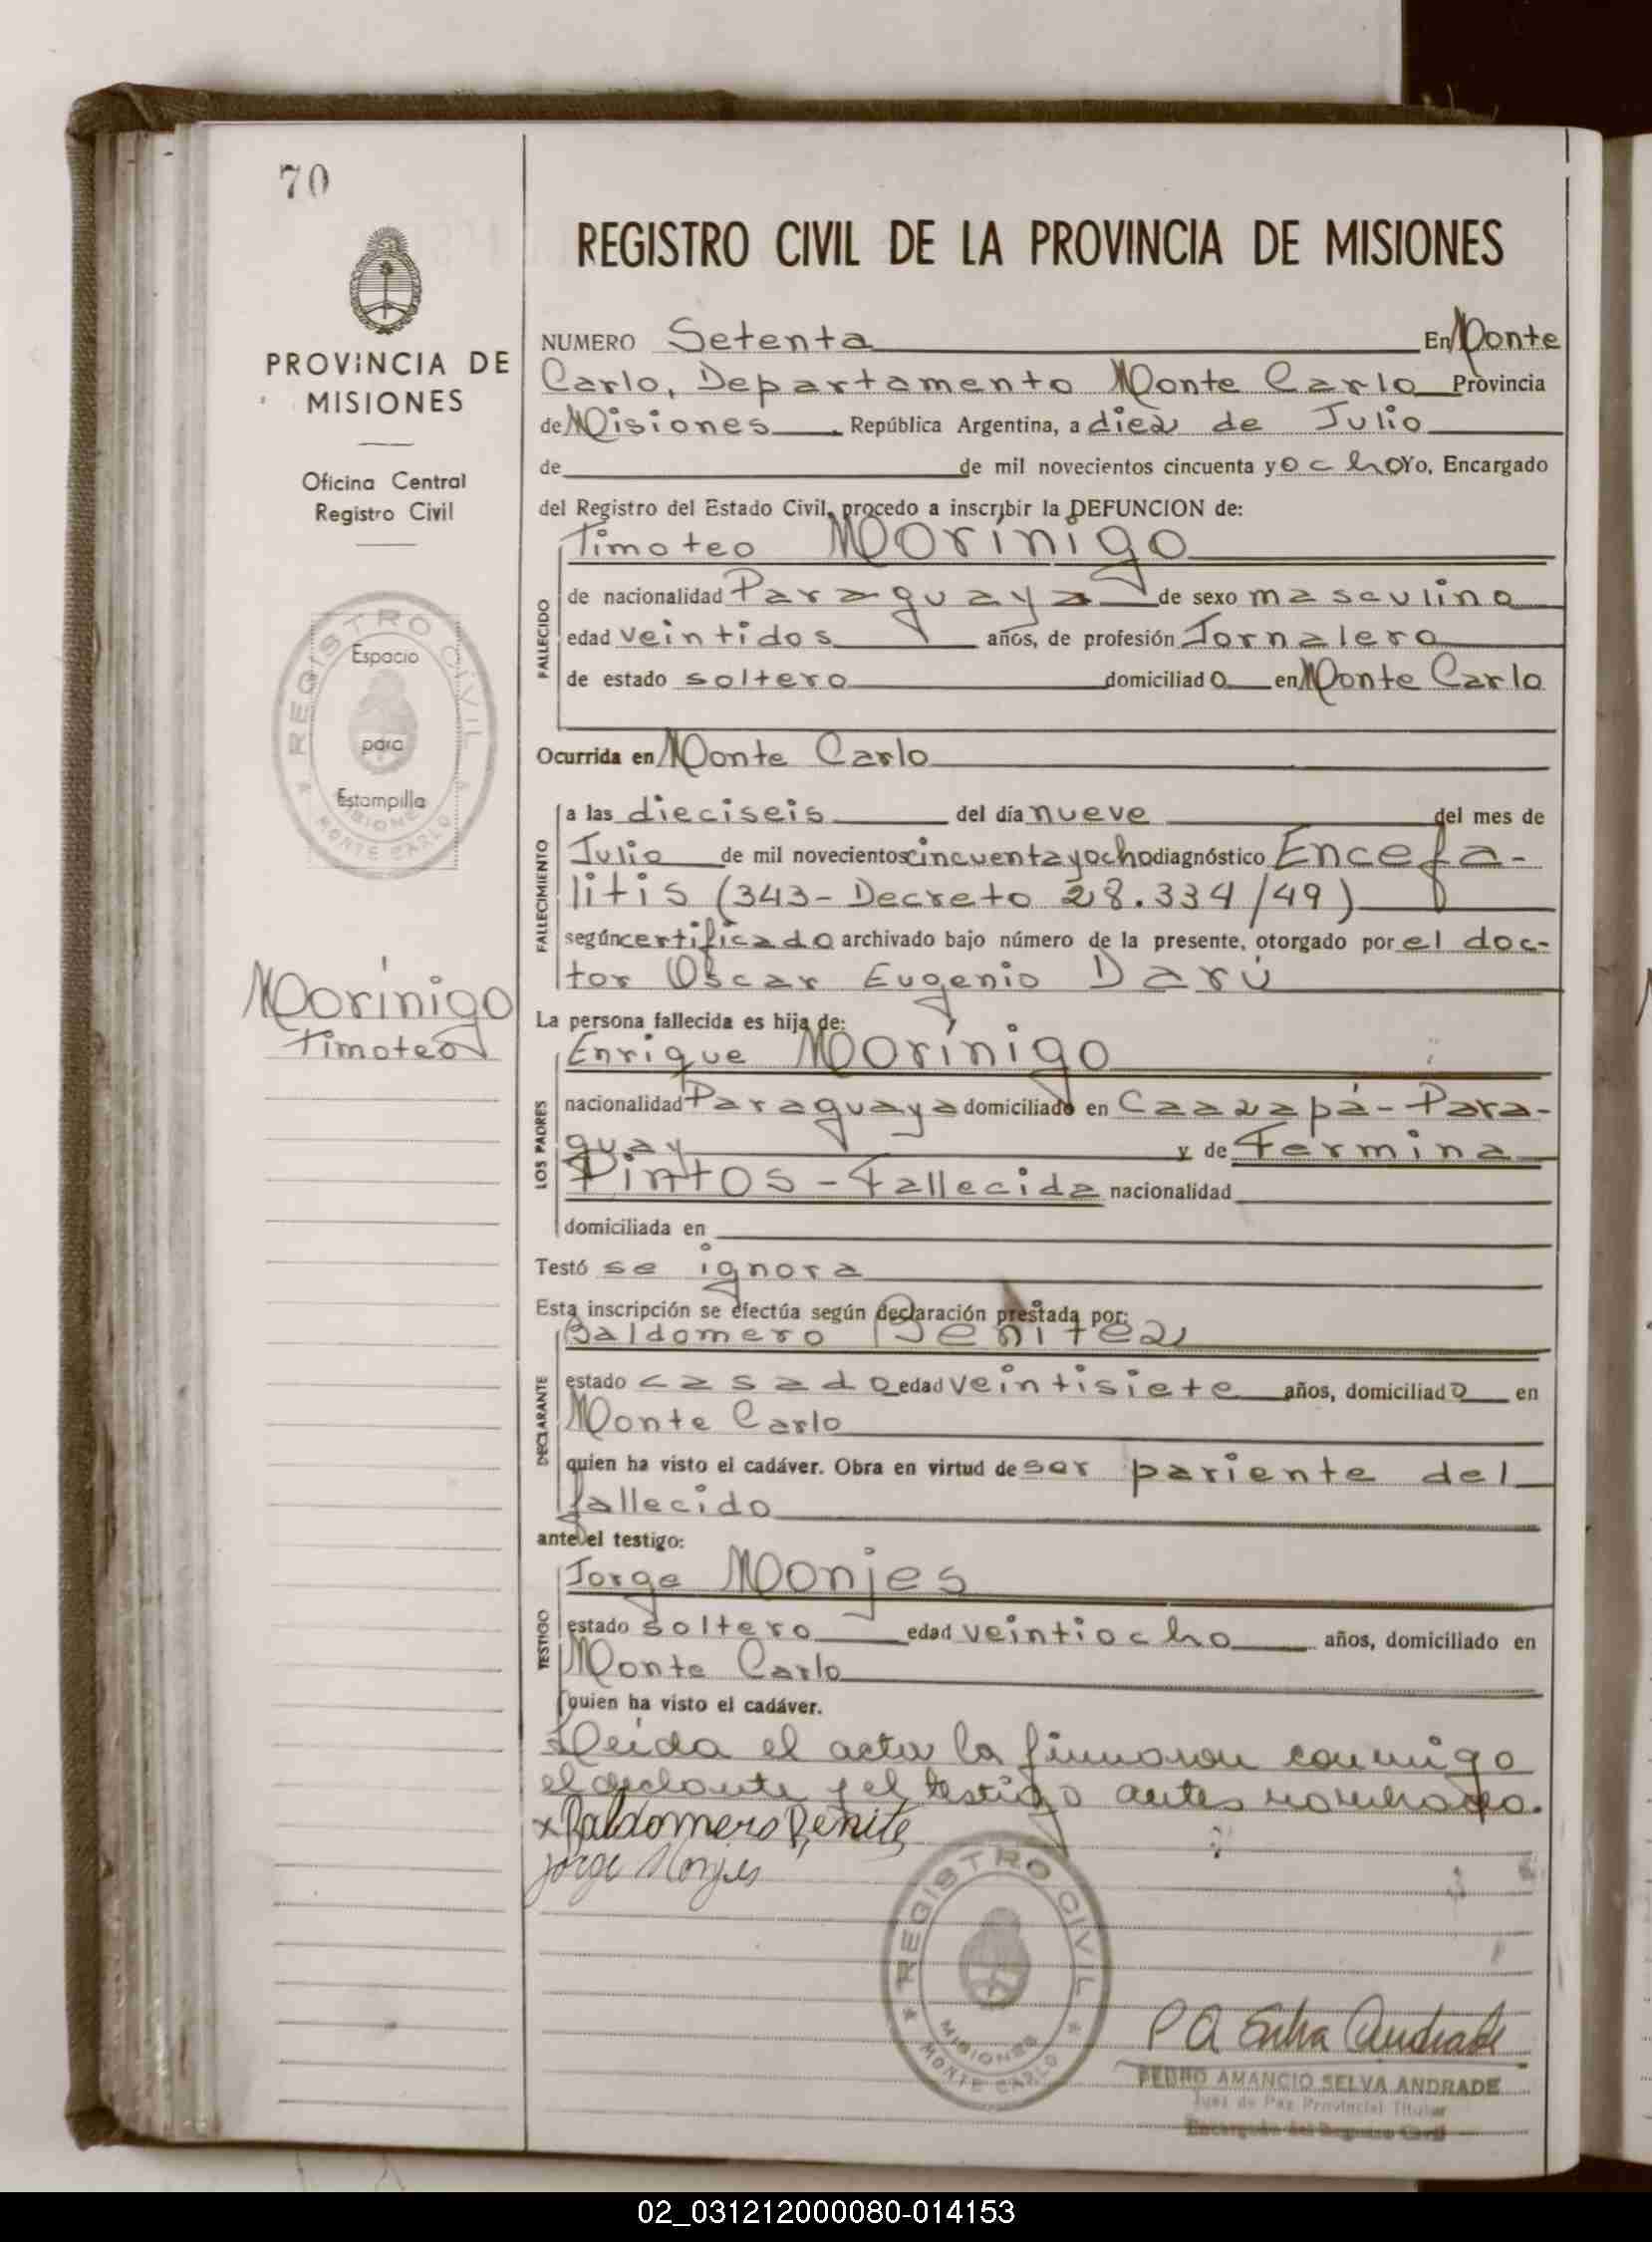 70
PROVINCIA DE
MISIONES
Oficina Central
Registro Civil
REGISTRO CIVIL
Espacio
para
Estampilla
MISIONES
MONTE CARLO
Morínigo
Timoteo
REGISTRO CIVIL DE LA PROVINCIA DE MISIONES
NUMERO Setenta En Monte
Carlo, Departamento Monte Carlo Provincia
de Misiones República Argentina, a diez de Julio
de de mil novecientos cincuenta y ocho Yo, Encargado
del Registro del Estado Civil, procedo a inscribir la DEFUNCION de:
Timoteo Morínigo
FALLECIDO
de nacionalidad Paraguaya de sexo masculino
edad veintidos años, de profesión Jornalero
de estado soltero domiciliado en Monte Carlo
Ocurrida en Monte Carlo
FALLECIMIENTO
a las dieciseis del día nueve del mes de
Julio de mil novecientos cincuenta y ocho diagnóstico Encefa-
litis (343- Decreto 28.334/49)
según certificado archivado bajo número de la presente, otorgado por el doc-
tor Oscar Eugenio Darú
La persona fallecida es hija de:
Enrique Morínigo
LOS PADRES
nacionalidad Paraguaya domiciliado en Caazapá - Para-
guay y de Fermina
Pintos - Fallecida nacionalidad
domiciliada en
Testó se ignora
Esta inscripción se efectúa según declaración prestada por:
Baldomero Benitez
DECLARANTE
estado casado edad veintisiete años, domiciliado en
Monte Carlo
quien ha visto el cadáver. Obra en virtud de ser pariente del
fallecido
ante el testigo:
Jorge Monjes
TESTIGO
estado soltero edad veintiocho años, domiciliado en
Monte Carlo
quien ha visto el cadáver.
Leída el acta la firmaron conmigo
el y el testigo antes nombrado.
x Baldomero Benite
Jorge Monjes
REGISTRO CIVIL
MISIONES
MONTE CARLO
P A Selva Andrade
PEDRO AMANCIO SELVA ANDRADE
Juez de Paz Provincial Titular
Encargado del Registro Civil
02_031212000080-014153